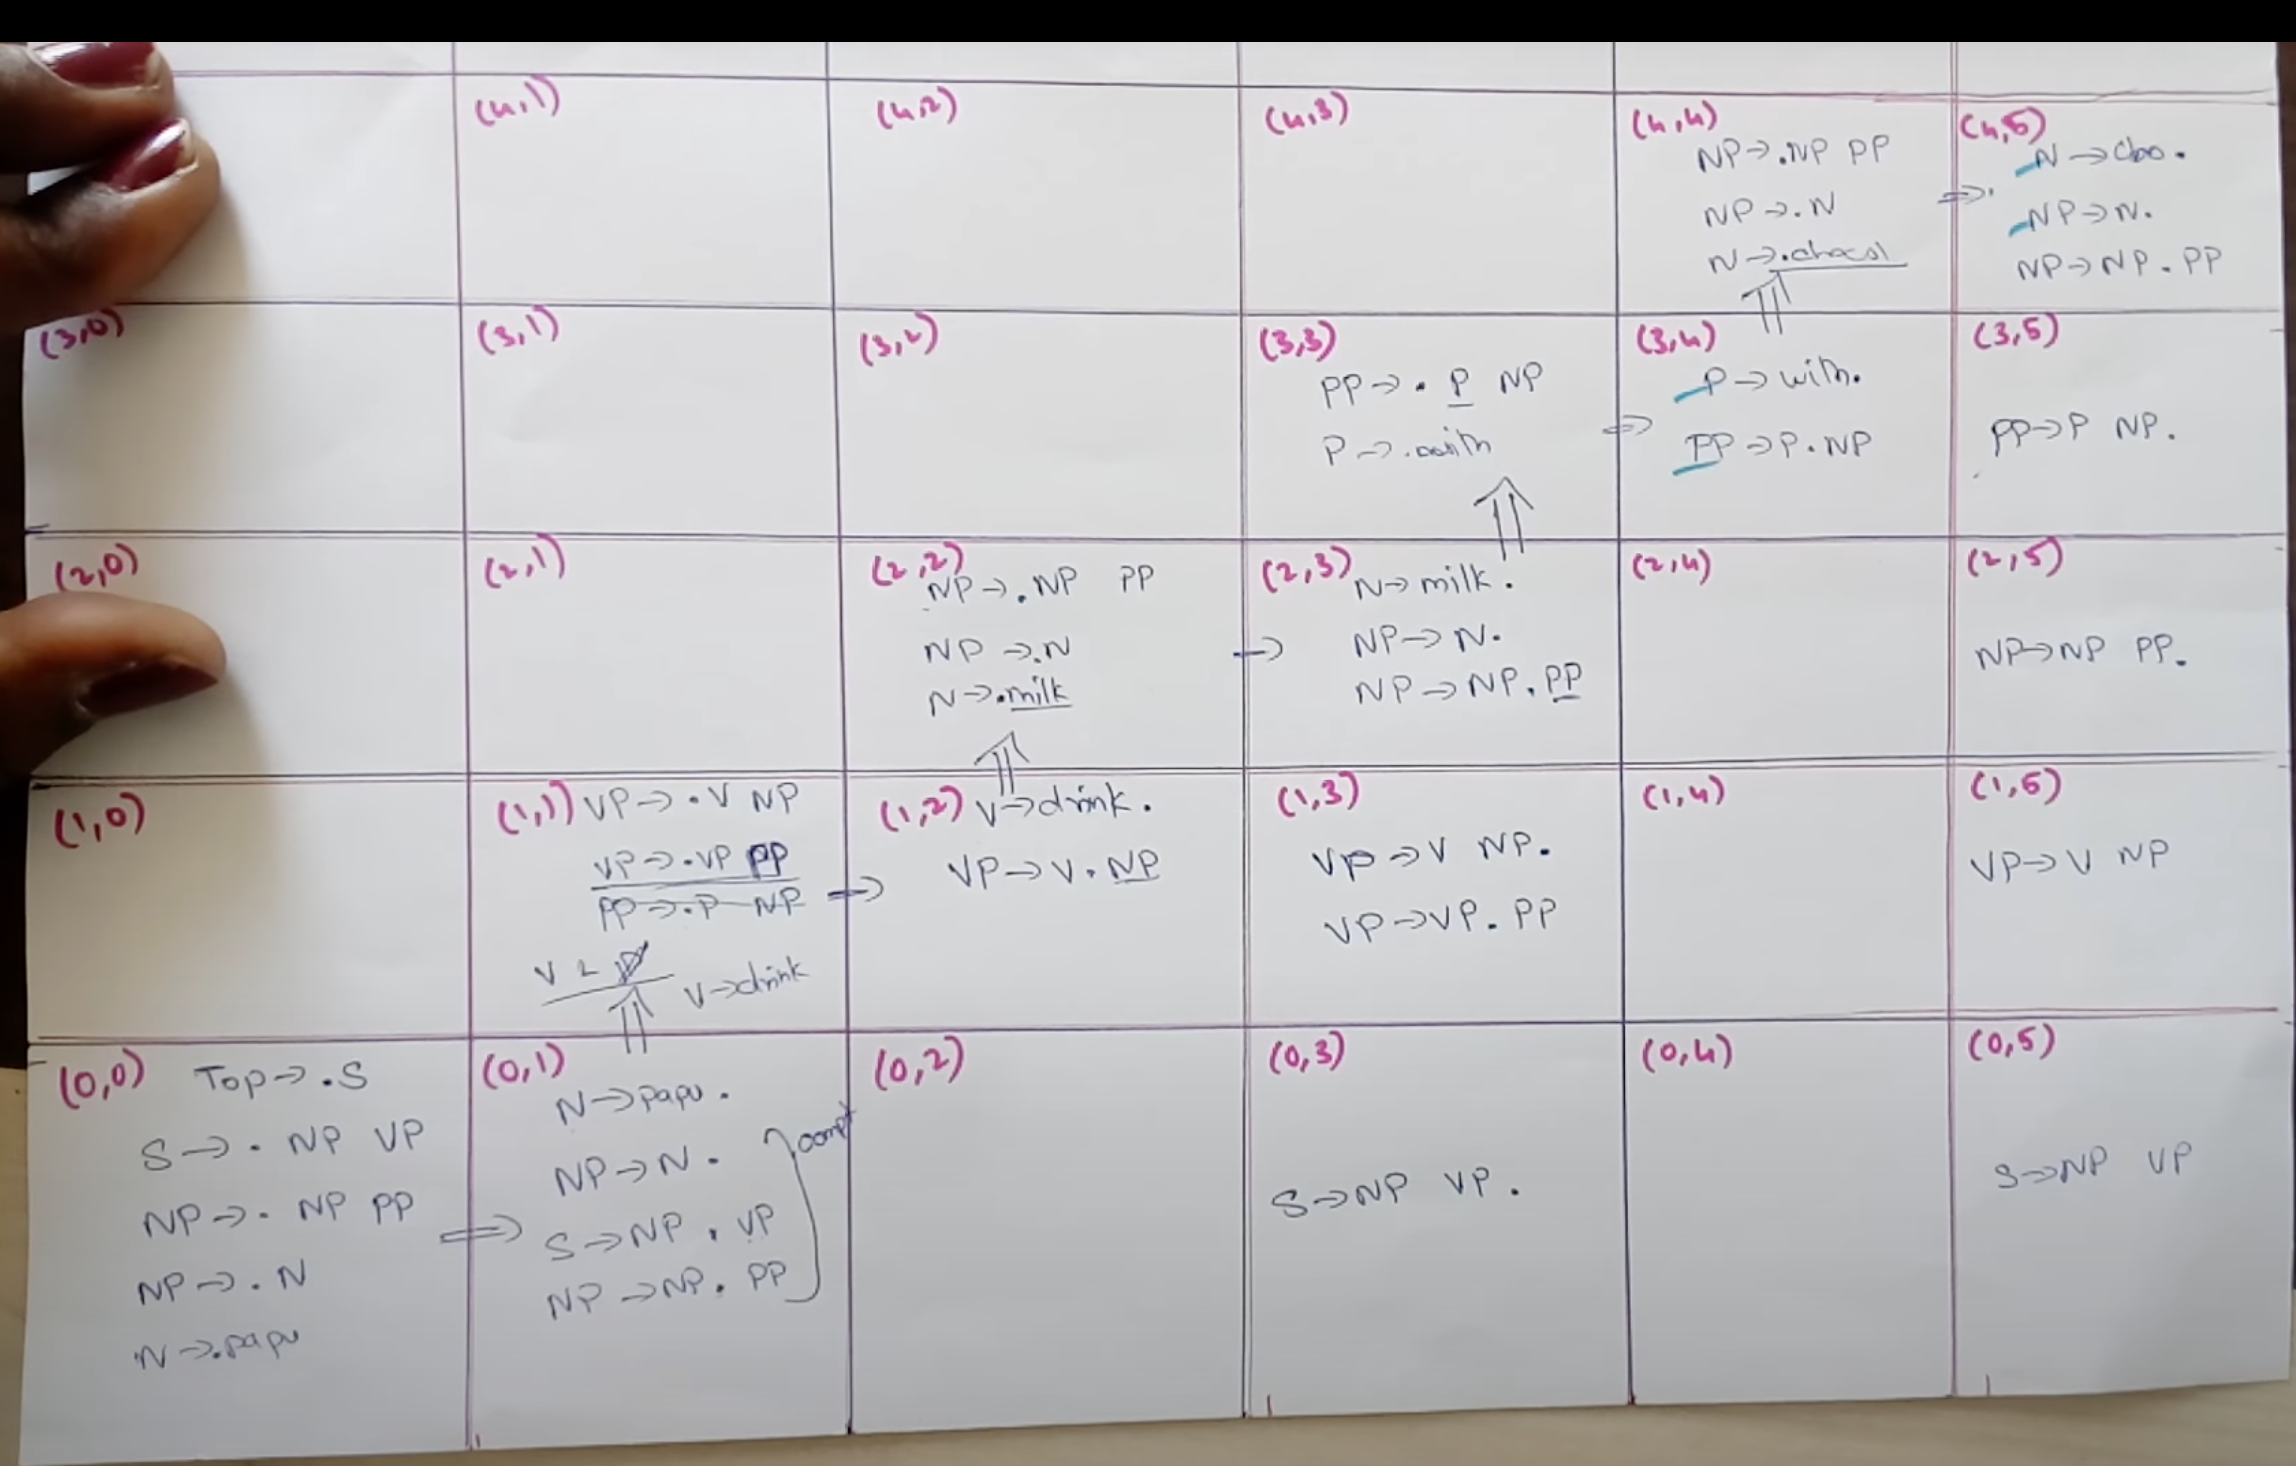 (4,1)
(4,2)
(4,3)
(4,4)
NP→.NP PP
NP→.N
N→.chocol
⇒
(4,5)
N→cho.
NP→N.
NP→NP.PP
(3,0)
(3,1)
(3,2)
(3,3)
PP→.P NP
P→.with
⇒
(3,4)
P→with.
PP→P.NP
(3,5)
PP→P NP.
(2,0)
(2,1)
(2,2)
NP→.NP PP
NP→.N
N→.milk
→
(2,3) N→milk.
NP→N.
NP→NP.PP
(2,4)
(2,5)
NP→NP PP.
(1,0)
(1,1) VP→.V NP
VP→.VP PP
PP→.P NP
V→drink
→
(1,2) V→drink.
VP→V.NP
(1,3)
VP→V NP.
VP→VP.PP
(1,4)
(1,5)
VP→V NP
(0,0) Top→.S
S→.NP VP
NP→.NP PP
NP→.N
N→.papu
⇒
(0,1)
N→papu.
NP→N.
S→NP.VP
NP→NP.PP
compt
(0,2)
(0,3)
S→NP VP.
(0,4)
(0,5)
S→NP VP